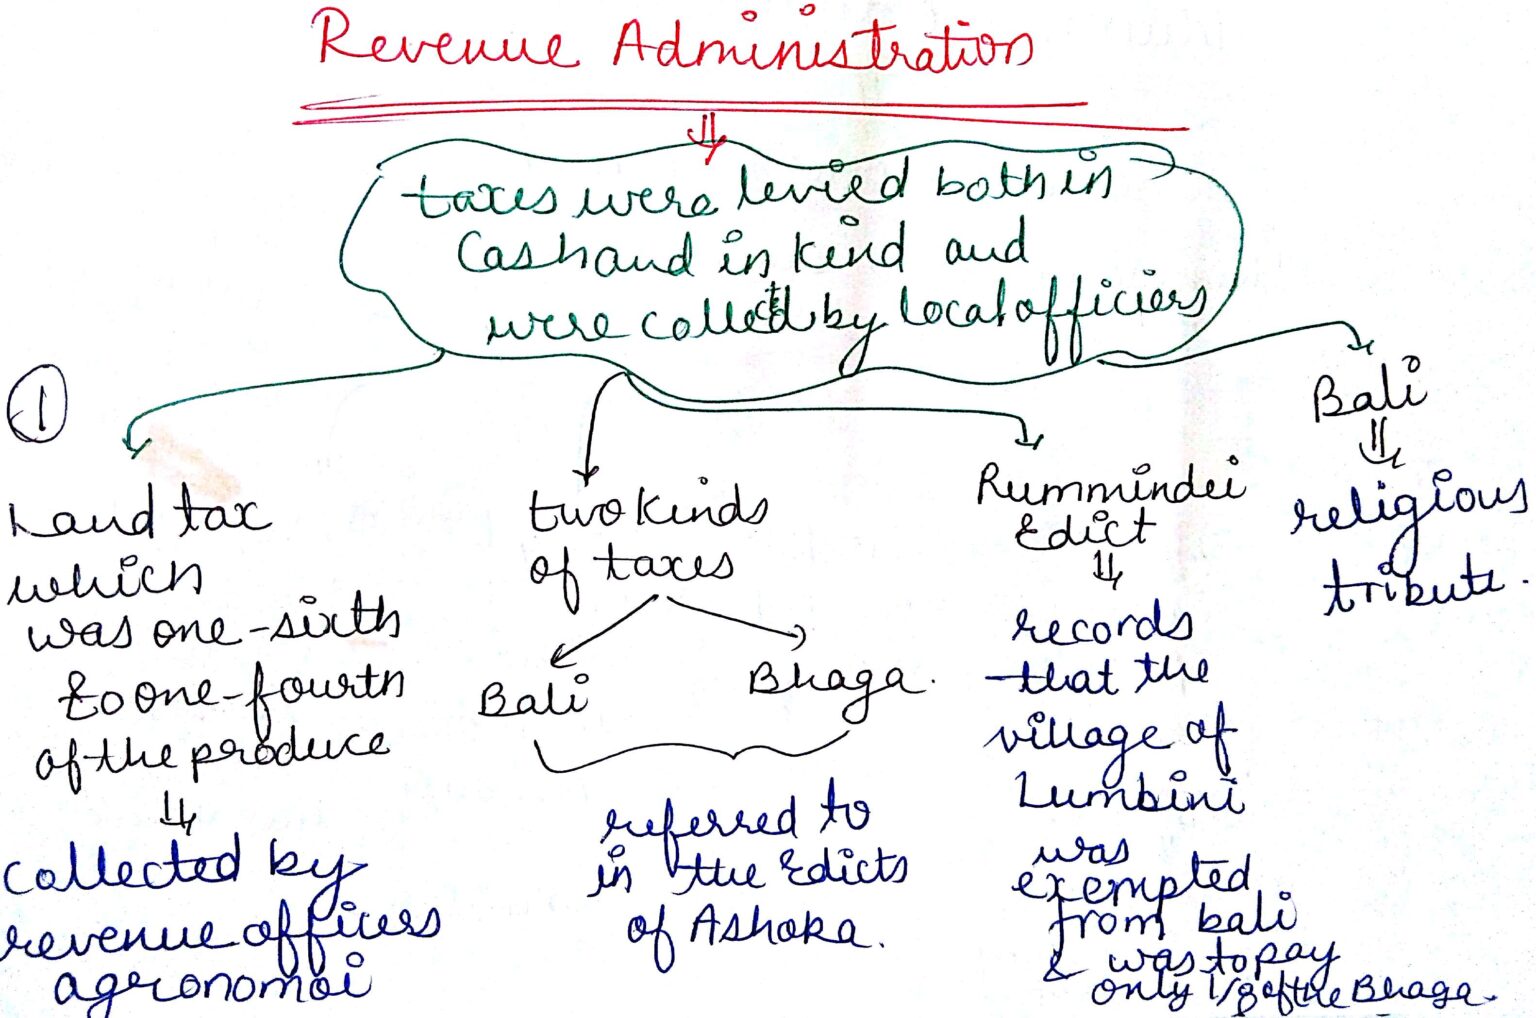 Revenue Administration
taxes were levied both in
Cash and in kind and
were collected by local officiers
1
Land tax
which
was one-sixth
to one-fourth
of the produce
collected by
revenue officers
agronomoi
two kinds
of taxes
Bali
Bhaga.
referred to
in the Edicts
of Ashoka.
Rummindei
Edict
records
that the
village of
Lumbini
was
exempted
from bali
& was to pay
only 1/8 of the Bhaga.
Bali
religious
tribute.